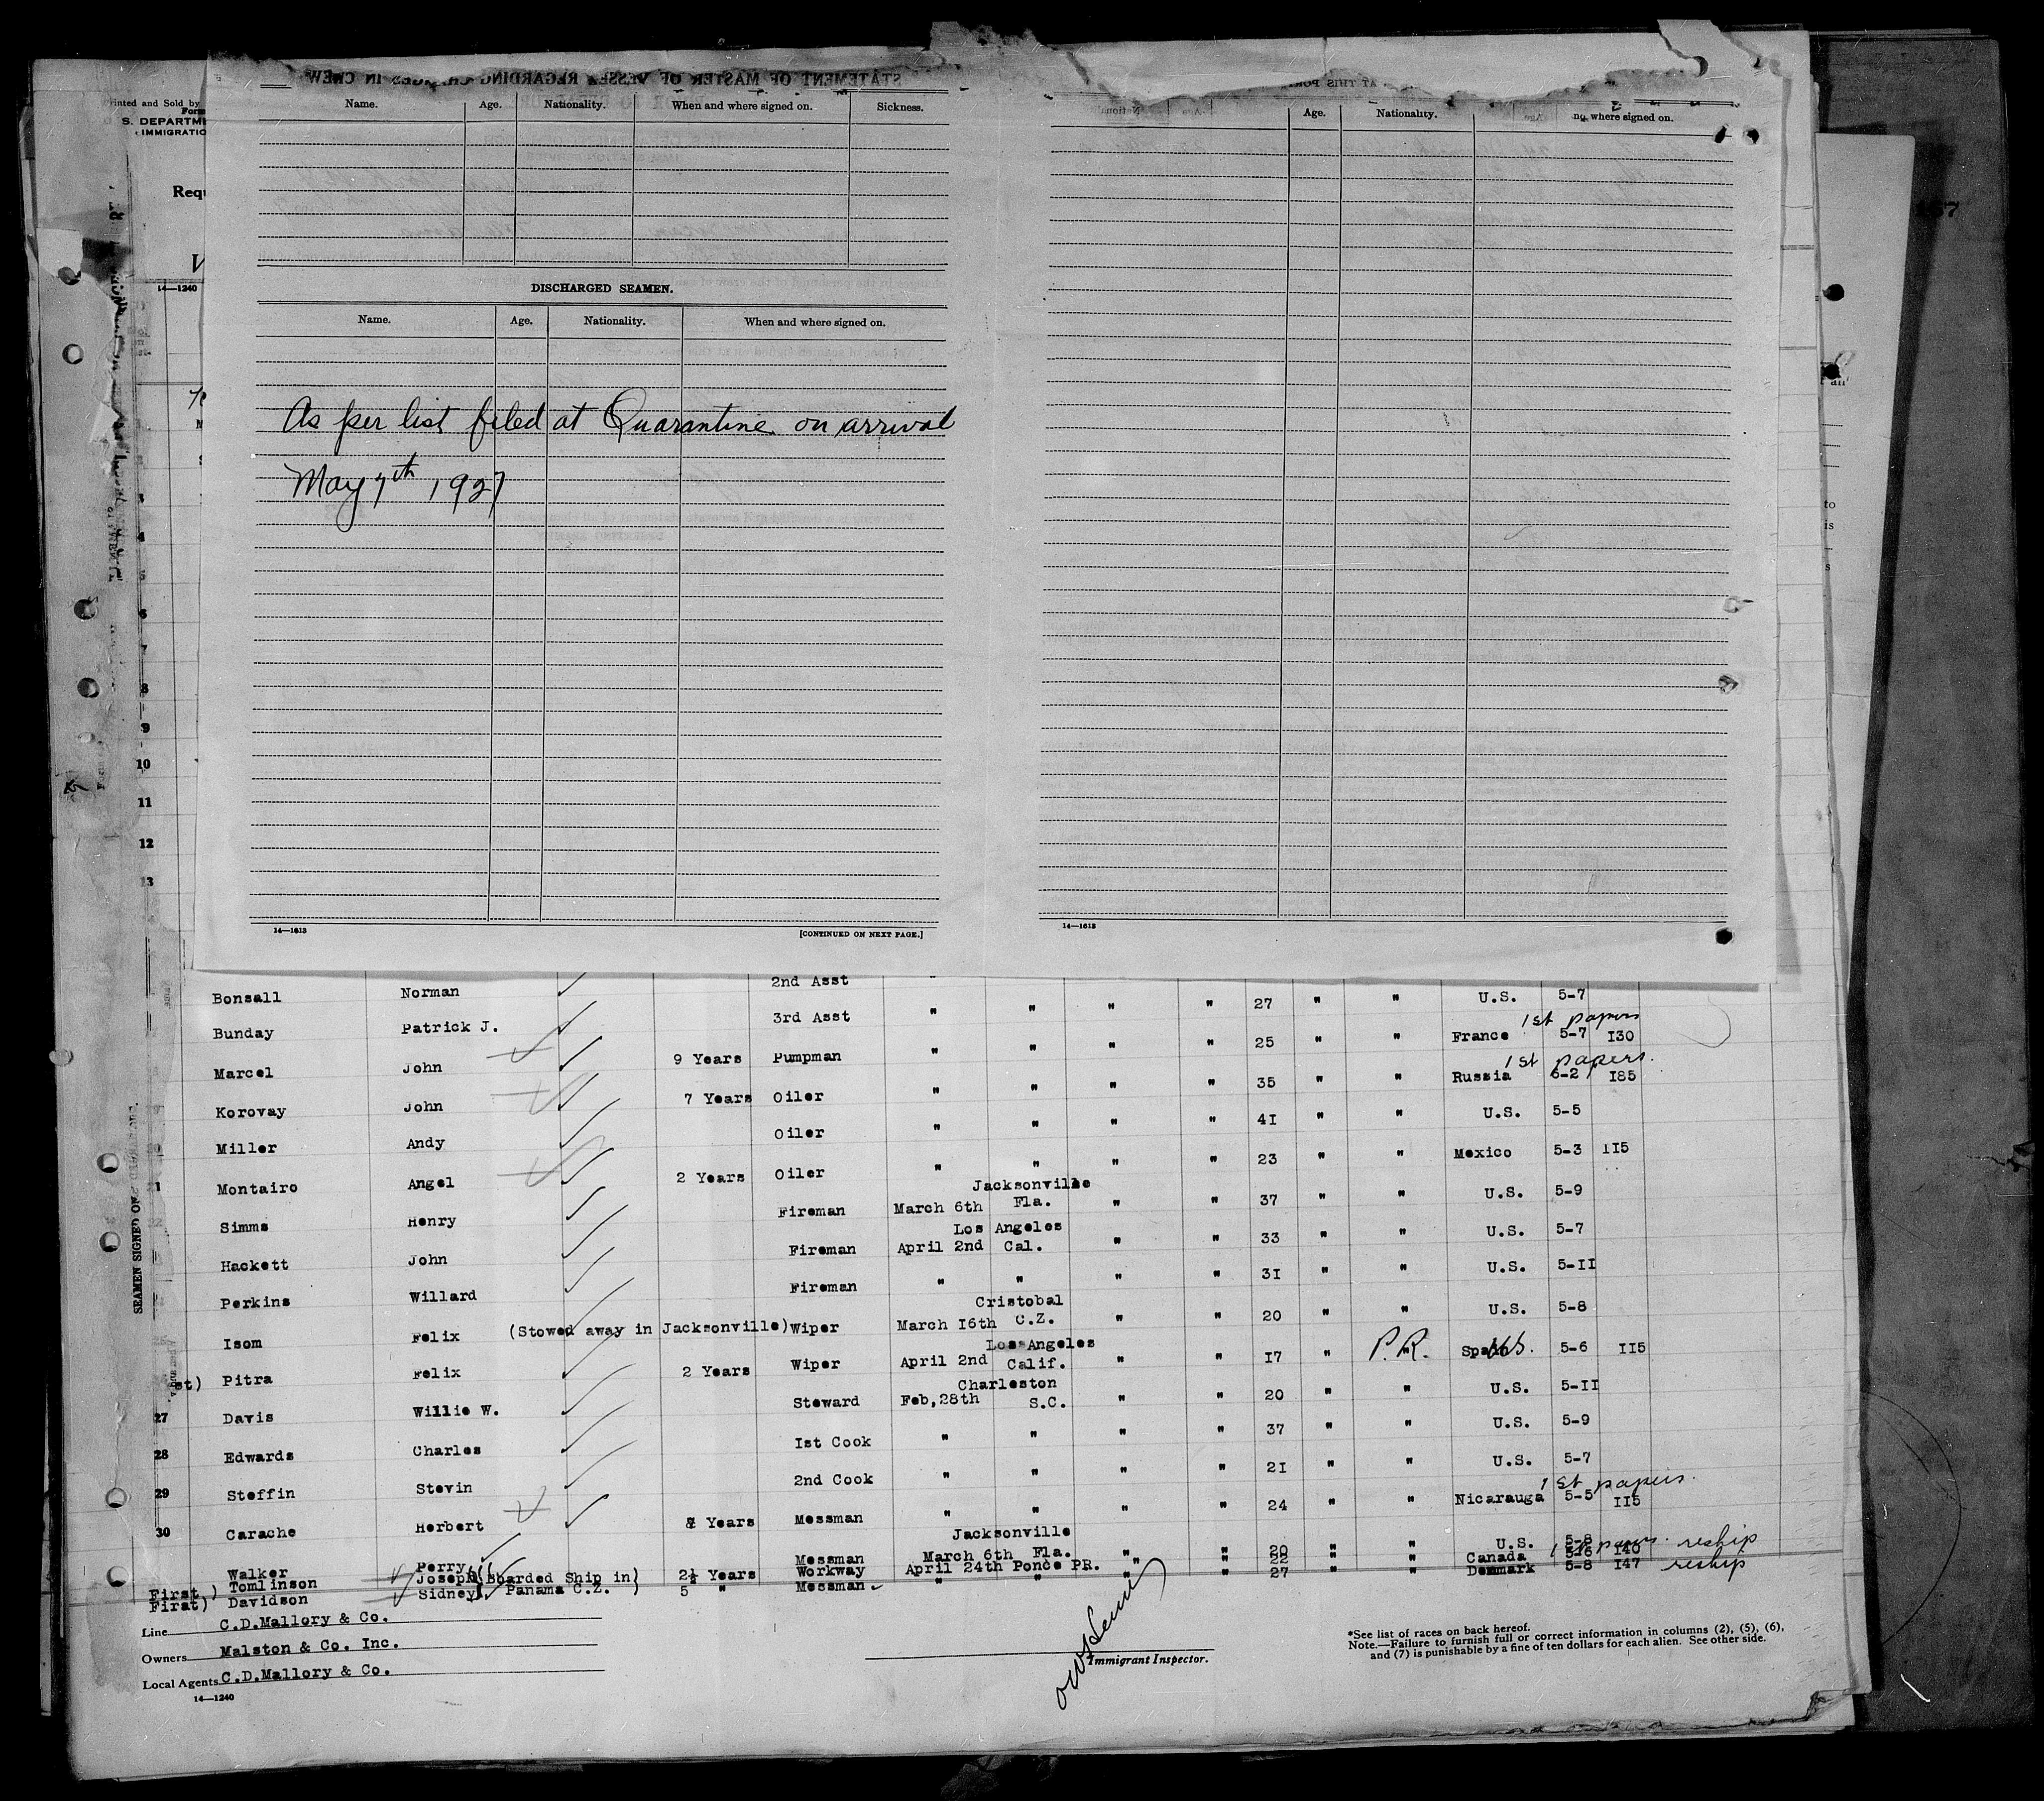 STATEMENT OF MASTER OF VESSEL REGARDING IN CREW
Name. Age. Nationality. When and where signed on. Sickness.
DISCHARGED SEAMEN.
Name. Age. Nationality. When and where signed on.
As per list filed at Quarantine on arrival
May 7th 1927
14—1613 [CONTINUED ON NEXT PAGE.]
Age. Nationality. where signed on.
14—1613
inted and Sold by
Form
S. DEPARTME
IMMIGRATIO
Requ
14—1240
3
4
5
6
7
8
9
10
11
12
13
SEAMEN SIGNED ON
Bonsall Norman 2nd Asst " " " " 27 " " U.S. 5-7
Bunday Patrick J. 3rd Asst " " " " 25 " " France 5-7 130 1st papers
Marcel John 9 Years Pumpman " " " " 35 " " Russia 5-2 185 1st papers.
Korovay John 7 Years Oiler " " " " 41 " " U.S. 5-5
Miller Andy Oiler " " " " 23 " " Mexico 5-3 115
Montairo Angel 2 Years Oiler March 6th Jacksonville Fla. " " 37 " " U.S. 5-9
Simms Henry Fireman April 2nd Los Angeles Cal. " " 33 " " U.S. 5-7
Hackett John Fireman " " " " 31 " " U.S. 5-11
Perkins Willard Fireman March 16th Cristobal C.Z. " " 20 " " U.S. 5-8
Isom Felix (Stowed away in Jacksonville) Wiper April 2nd Los Angeles Calif. " " 17 " P.R. 5-6 115
st) Pitra Felix 2 Years Wiper Feb,28th Charleston S.C. " " 20 " " U.S. 5-11
27 Davis Willie W. Steward " " " " 37 " " U.S. 5-9
28 Edwards Charles 1st Cook " " " " 21 " " U.S. 5-7
29 Steffin Stevin 2nd Cook " " " " 24 " " Nicarauga 5-5 115 1st papers.
30 Carache Herbert Years Messman
Walker Perry Messman March 6th Jacksonville Fla. " " 20 " " U.S. 5-8
First ) Tomlinson Joseph (Boarded Ship in) 2½ Years Workway April 24th Ponce PR. " " 22 " " Canada 5-6 140 reship
First) Davidson Sidney ( Panama C.Z. ) 5 " Messman " " " " 27 " " Denmark 5-8 147 reship
Line C.D.Mallory & Co.
Owners Malston & Co. Inc.
Local Agents C.D.Mallory & Co.
14—1240
Immigrant Inspector.
*See list of races on back hereof.
Note.—Failure to furnish full or correct information in columns (2), (5), (6),
and (7) is punishable by a fine of ten dollars for each alien. See other side.